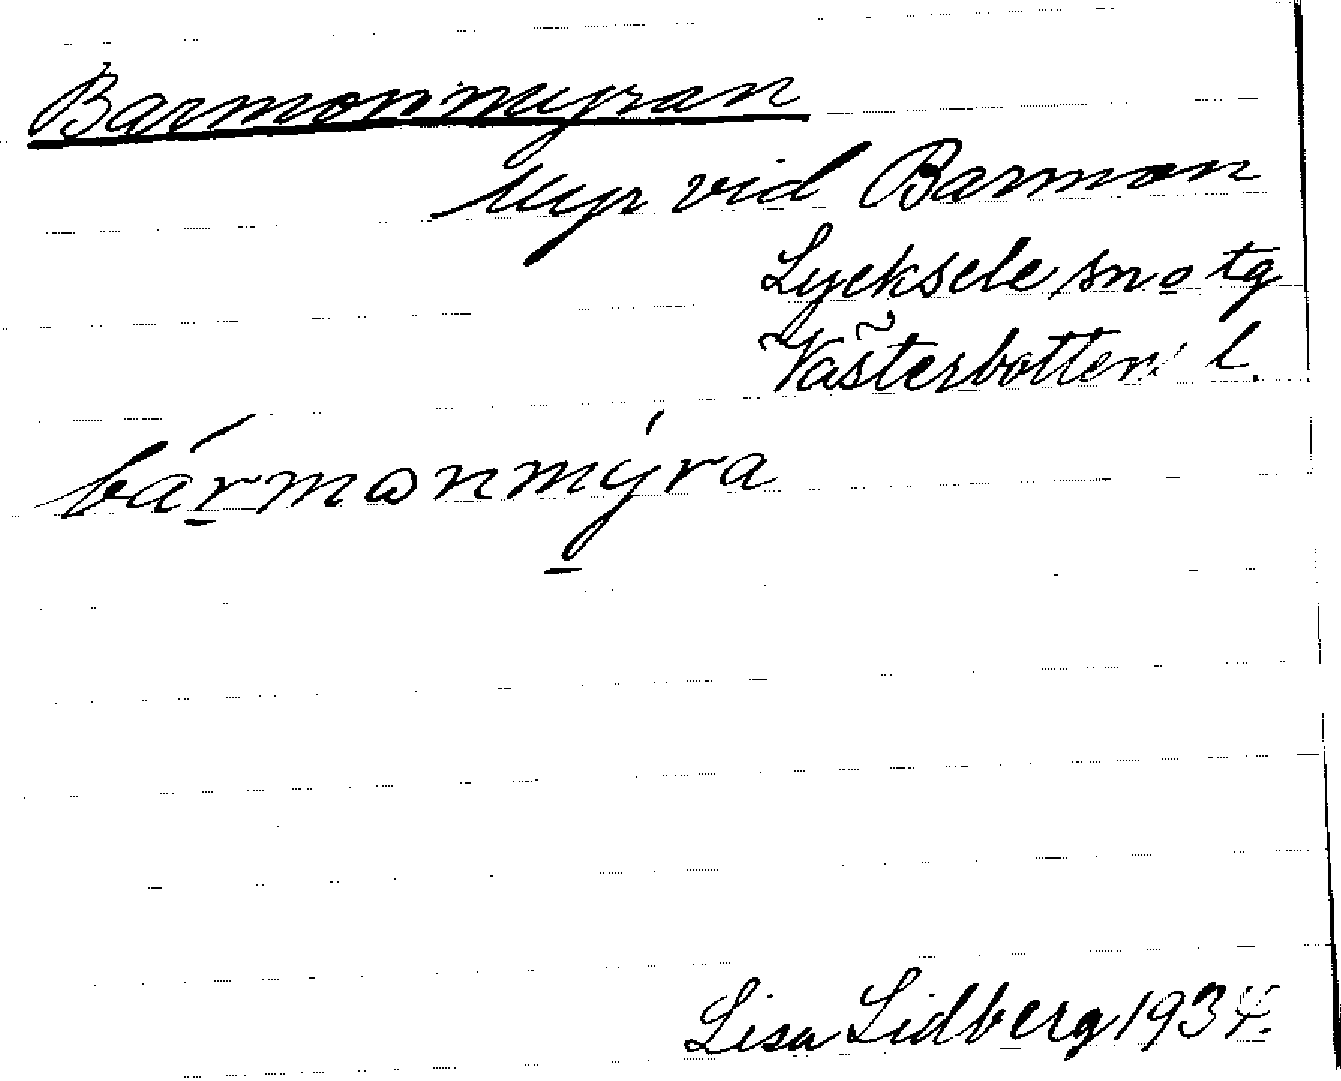 Barmonmyran
Myr vid Barmon
Lycksele sn o tg
Västerbottens l.
bármⱺnmýra
Lisa Lidberg 1934.